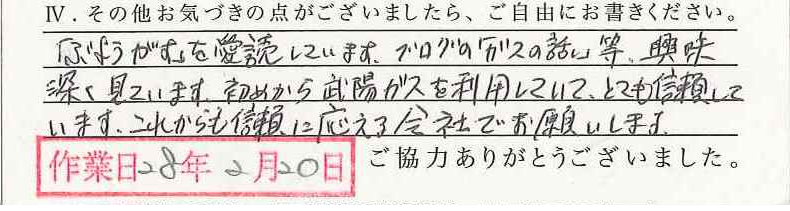 Ⅳ．その他お気づきの点がございましたら、ご自由にお書きください。
「ぶようがす」を愛読しています。ブログの「ガスの話」等、興味
深く見ています。初めから武陽ガスを利用していて、とても信頼して
います。これからも信頼に応える会社でお願いします。
作業日28年2月20日 ご協力ありがとうございました。